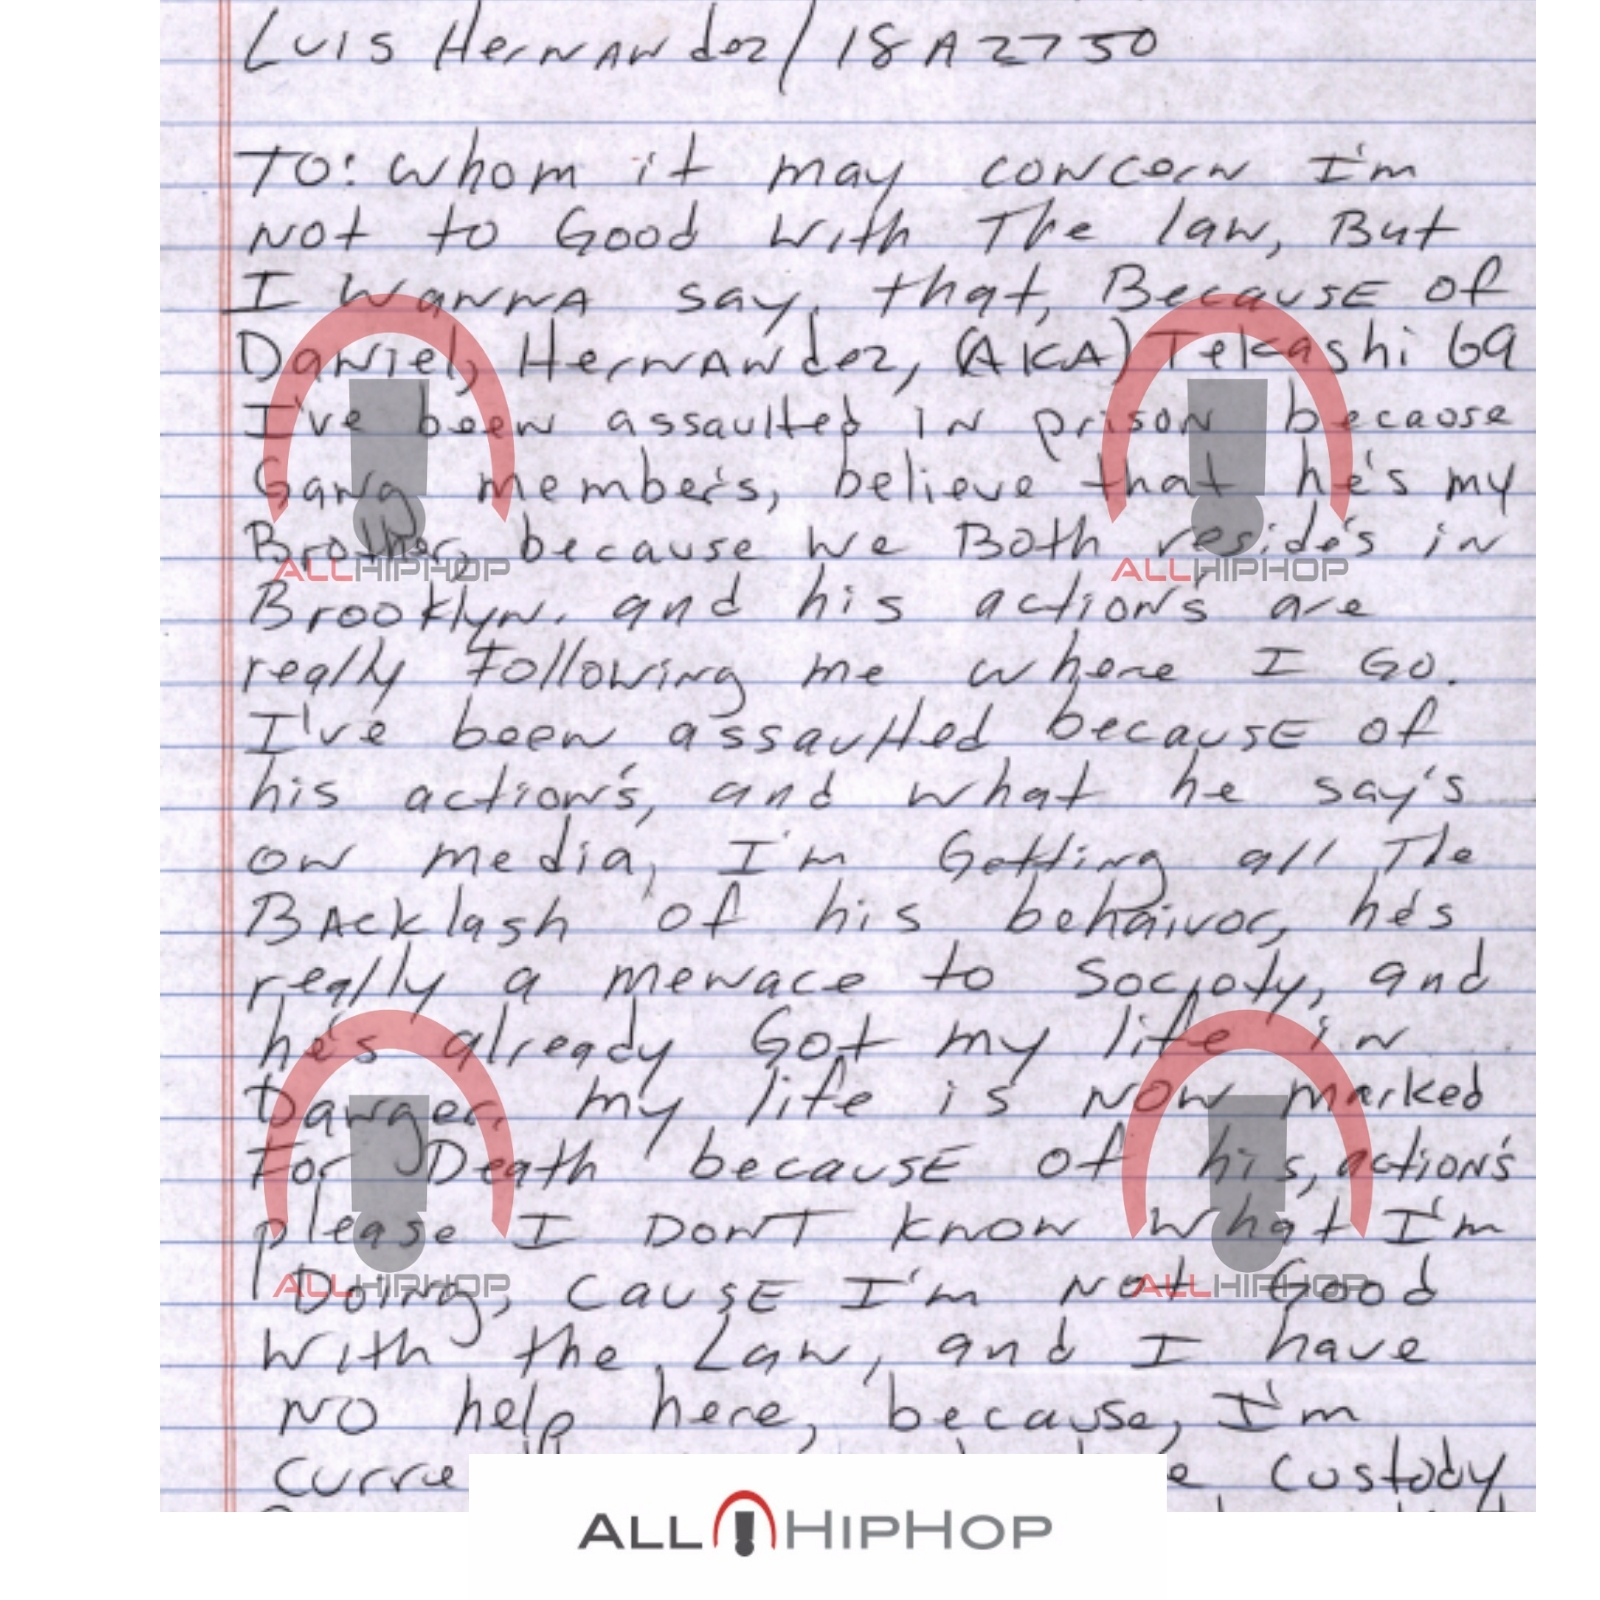 Luis Hernandez/18A2750
To: Whom it may concern I'm
Not to Good with The law, But
I wanna say, that, Because of
Daniel, Hernandez, (AKA) Tekashi 69
I've been assaulted in prison because
Gang member's, believe that he's my
Brother, because we Both reside's in
Brooklyn. and his action's are
really Following me where I Go.
I've been assaulted because of
his action's, and what he say's
on media, I'm Getting all The
BAcklash of his behaivor, he's
really a menace to Socioty, and
he's already Got my life in
Danger, my life is now marked
For Death because of his, action's
please I Don't know what I'm
Doing, cause I'm Not Good
With the Law, and I have
NO help here, because, I'm
custody
ALLHIPHOP
ALLHIPHOP
ALLHIPHOP
ALLHIPHOP
ALLHIPHOP